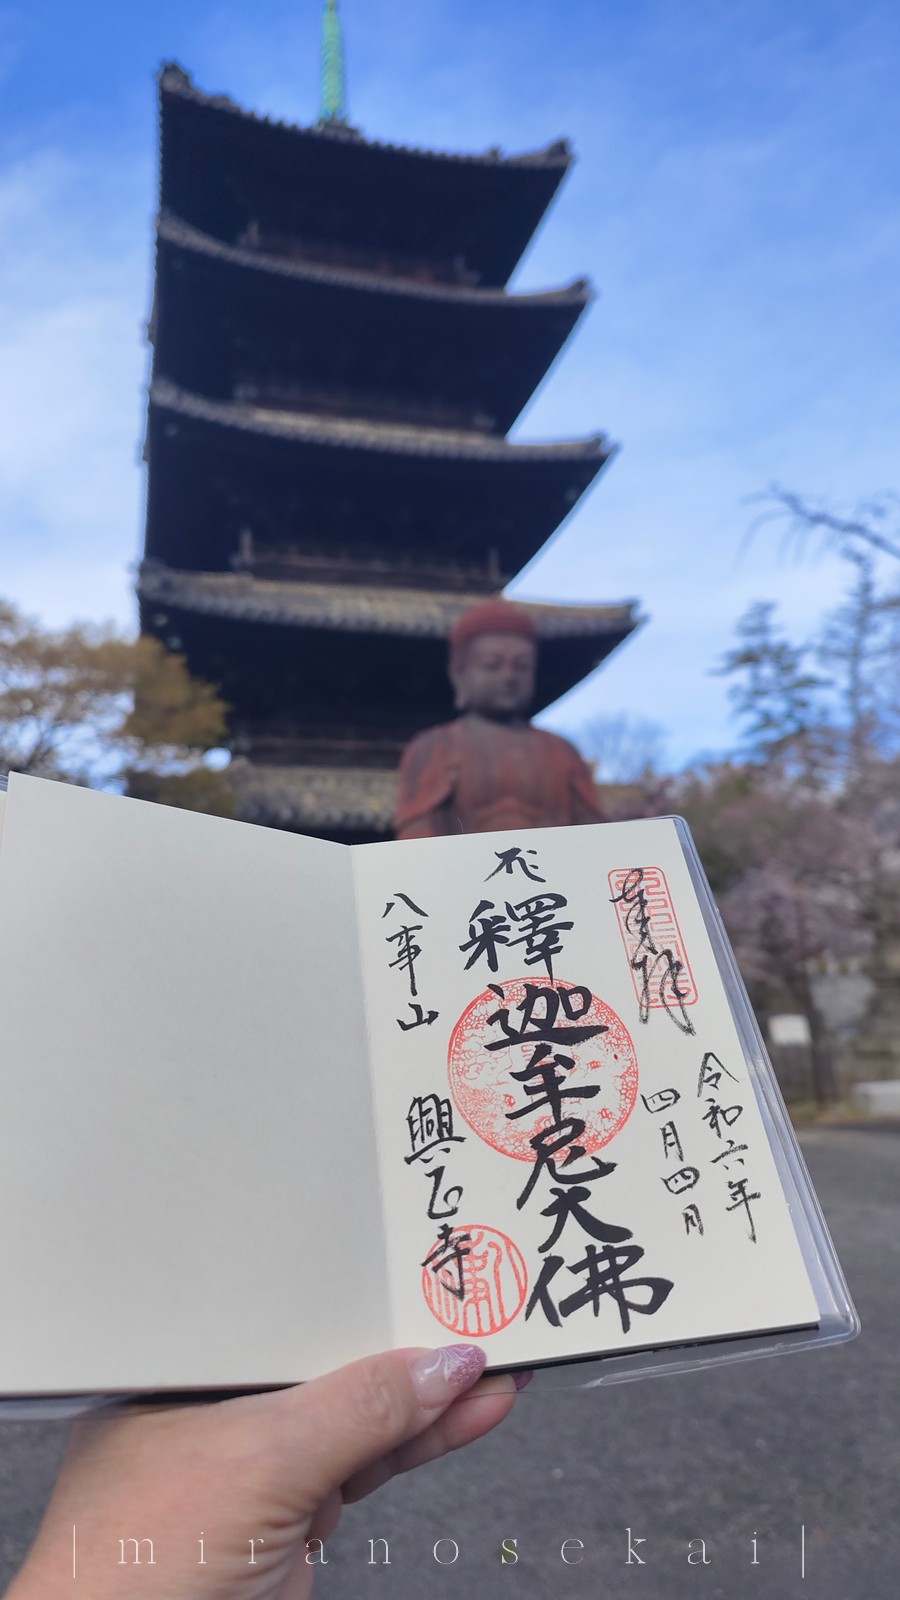 奉拝
令和六年
四月四日
釋迦牟尼大佛
八事山 興正寺
|miranosekai|